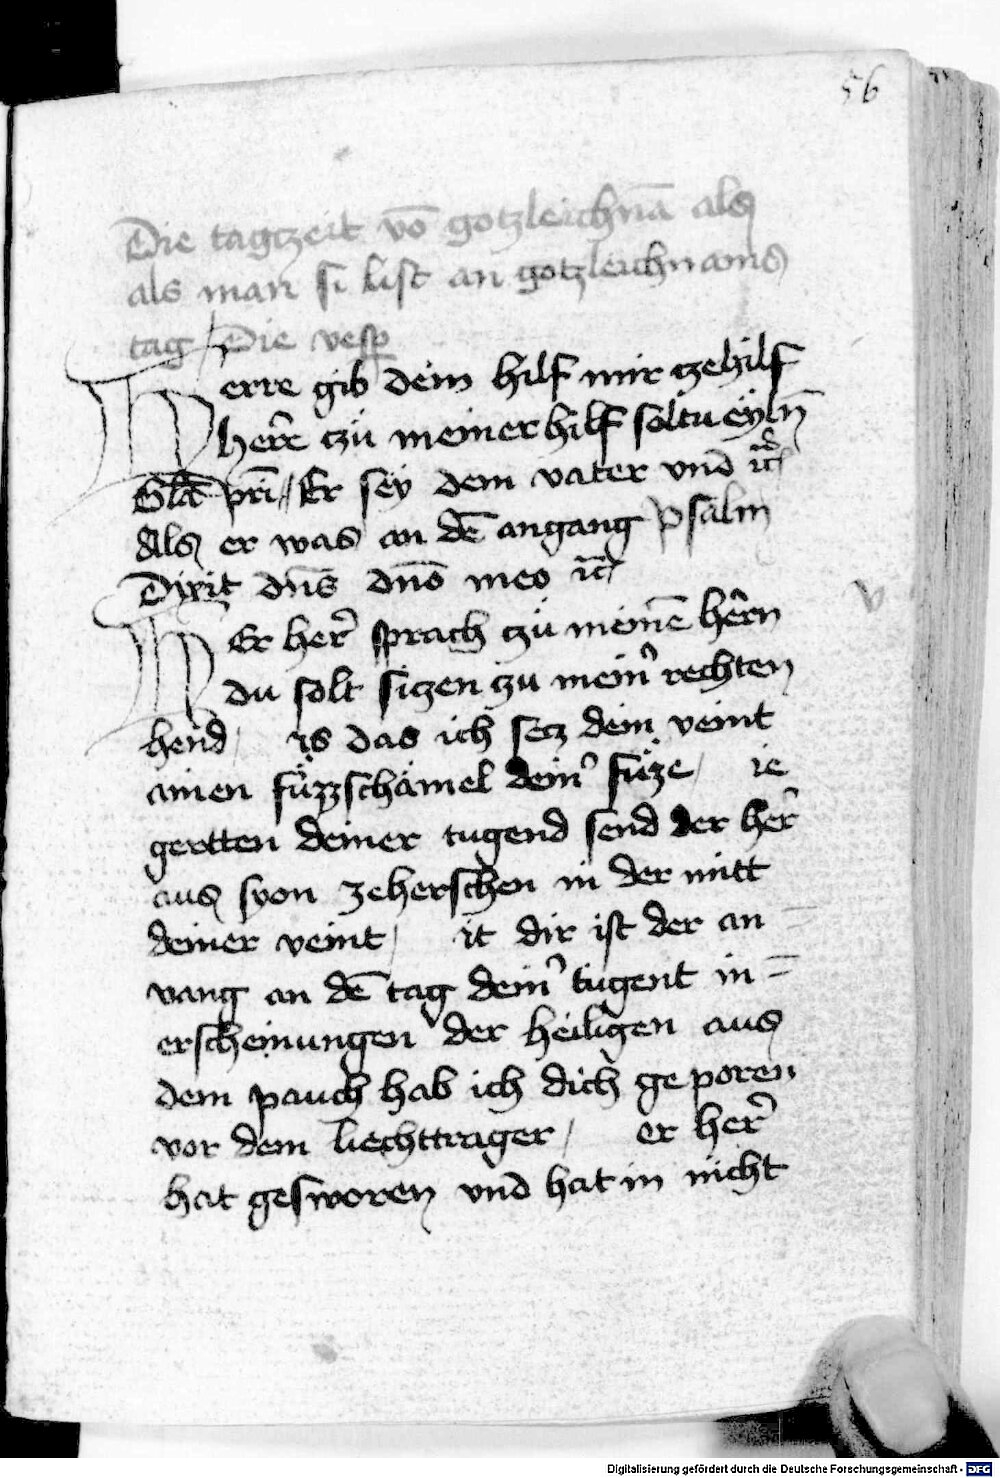 56
Die tagczeit vō gotzleichnā als
als man si list an gotzleichnams
tag Die vesp
Herre gib dein hilf mir czehilf
herr̄ czü meiner hilf soltu eyln̄
Glā pri Er sey dem vater vnd
Als er was an dē angang psalm
Dixit dn̄s dn̄o meo
Er her̄ sprach czü meinē herrn
du solt siczen czu mein̄ rechten
hend is das ich secz dein veint
ainen füzzschämel dein̄ füze ie
gertten deiner tugend send der her̄
aus syon zeherschen in der mitt
deiner veint it dir ist der an
vang an dē tag dein̄ tugent in
erscheinungen der heiligen aus
dem pauch hab ich dich geporen
vor dem liechttrager er her̄
hat gesworen vnd hat in nicht
V
Digitalisierung gefördert durch die Deutsche Forschungsgemeinschaft - DFG